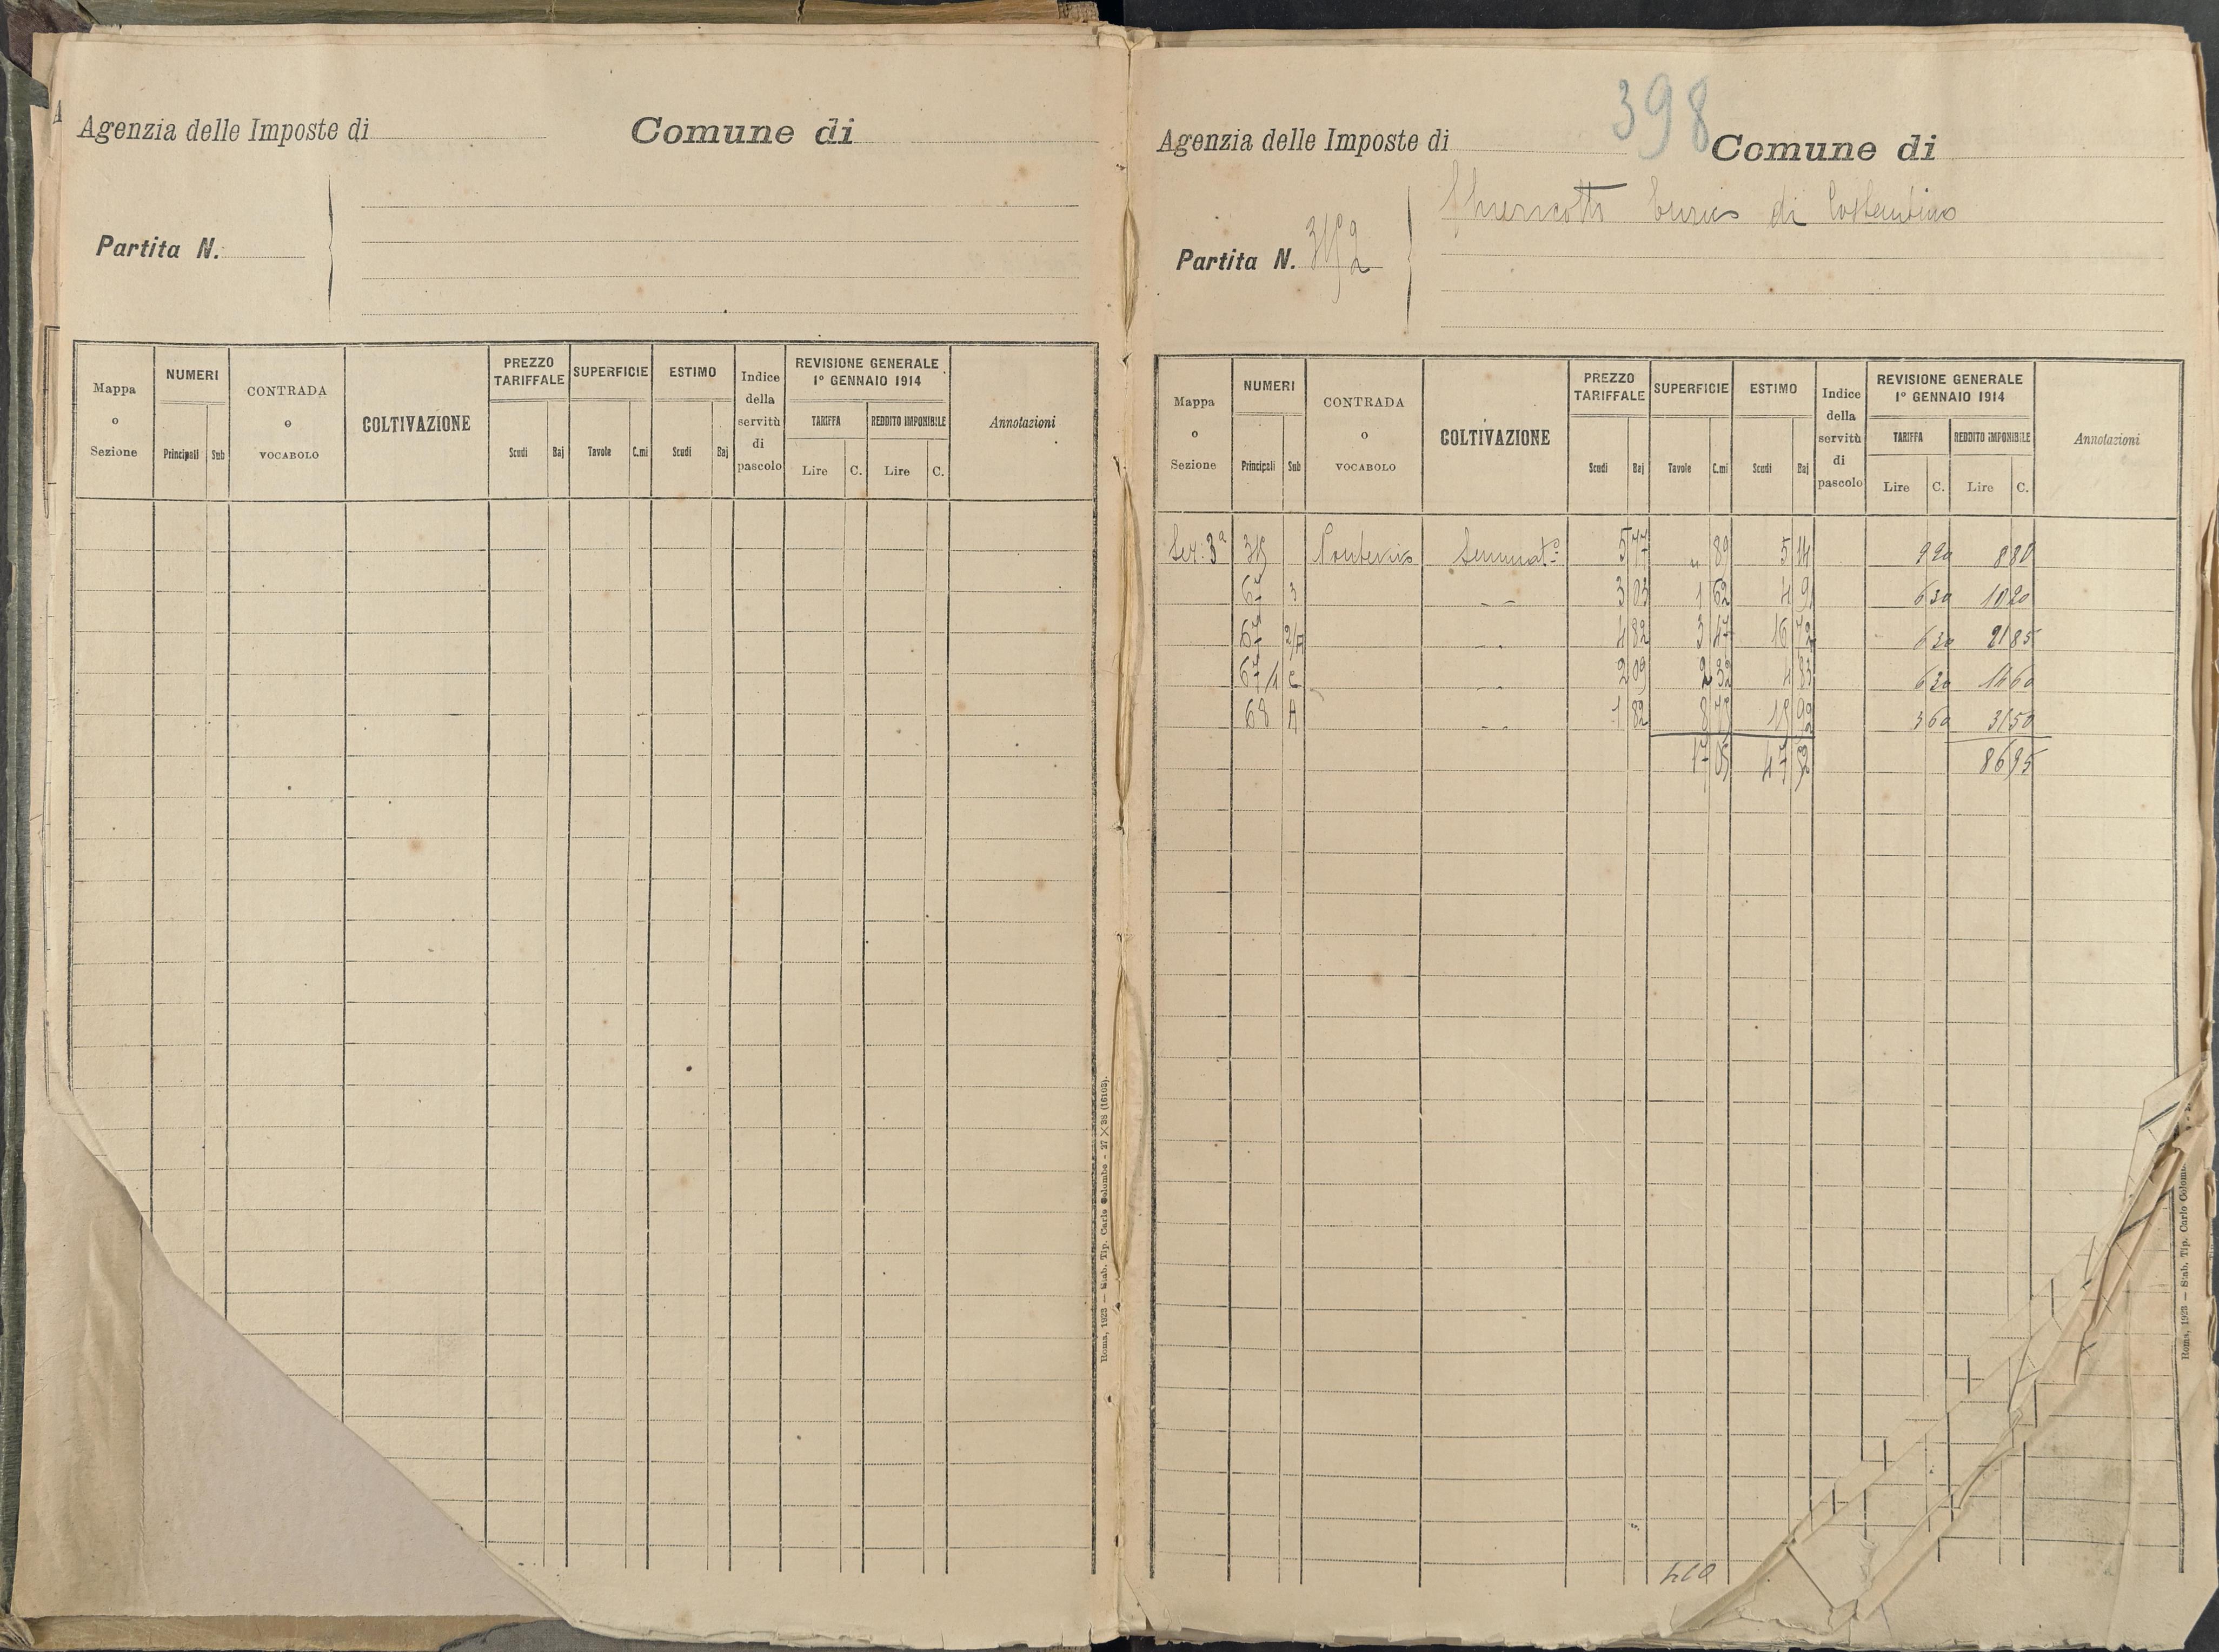 Agenzia delle Imposte di Comune di
Partita N.
Mappa o Sezione
NUMERI
Principali Sub
CONTRADA o VOCABOLO
COLTIVAZIONE
PREZZO TARIFFALE
Scudi Baj
SUPERFICIE
Tavole C.mi
ESTIMO
Scudi Baj
Indice della servitù di pascolo
REVISIONE GENERALE
1° GENNAIO 1914
TARIFFA REDDITO IMPONIBILE
Lire C. Lire C.
Annotazioni
Roma, 1923 — Stab. Tip. Carlo Colombo - 27 × 38 (16103).
398
Agenzia delle Imposte di Comune di
di Costantino
Partita N.
Mappa o Sezione
NUMERI
Principali Sub
CONTRADA o VOCABOLO
COLTIVAZIONE
PREZZO TARIFFALE
Scudi Baj
SUPERFICIE
Tavole C.mi
ESTIMO
Scudi Baj
Indice della servitù di pascolo
REVISIONE GENERALE
1° GENNAIO 1914
TARIFFA REDDITO IMPONIBILE
Lire C. Lire C.
Annotazioni
Sez: 3ª Seminat.º 5 77 „ 89 5 14 9 20 8 80
67 3 3 03 1 62 4 91 6 30 10 20
67 2/A 4 82 3 47 16 72 6 30 21 85
67/1 C 2 09 2 32 4 83 6 30 14 60
68 A 1 82 8 78 15 92 3 60 31 50
86 95
Roma, 1923 — Stab. Tip. Carlo Colom